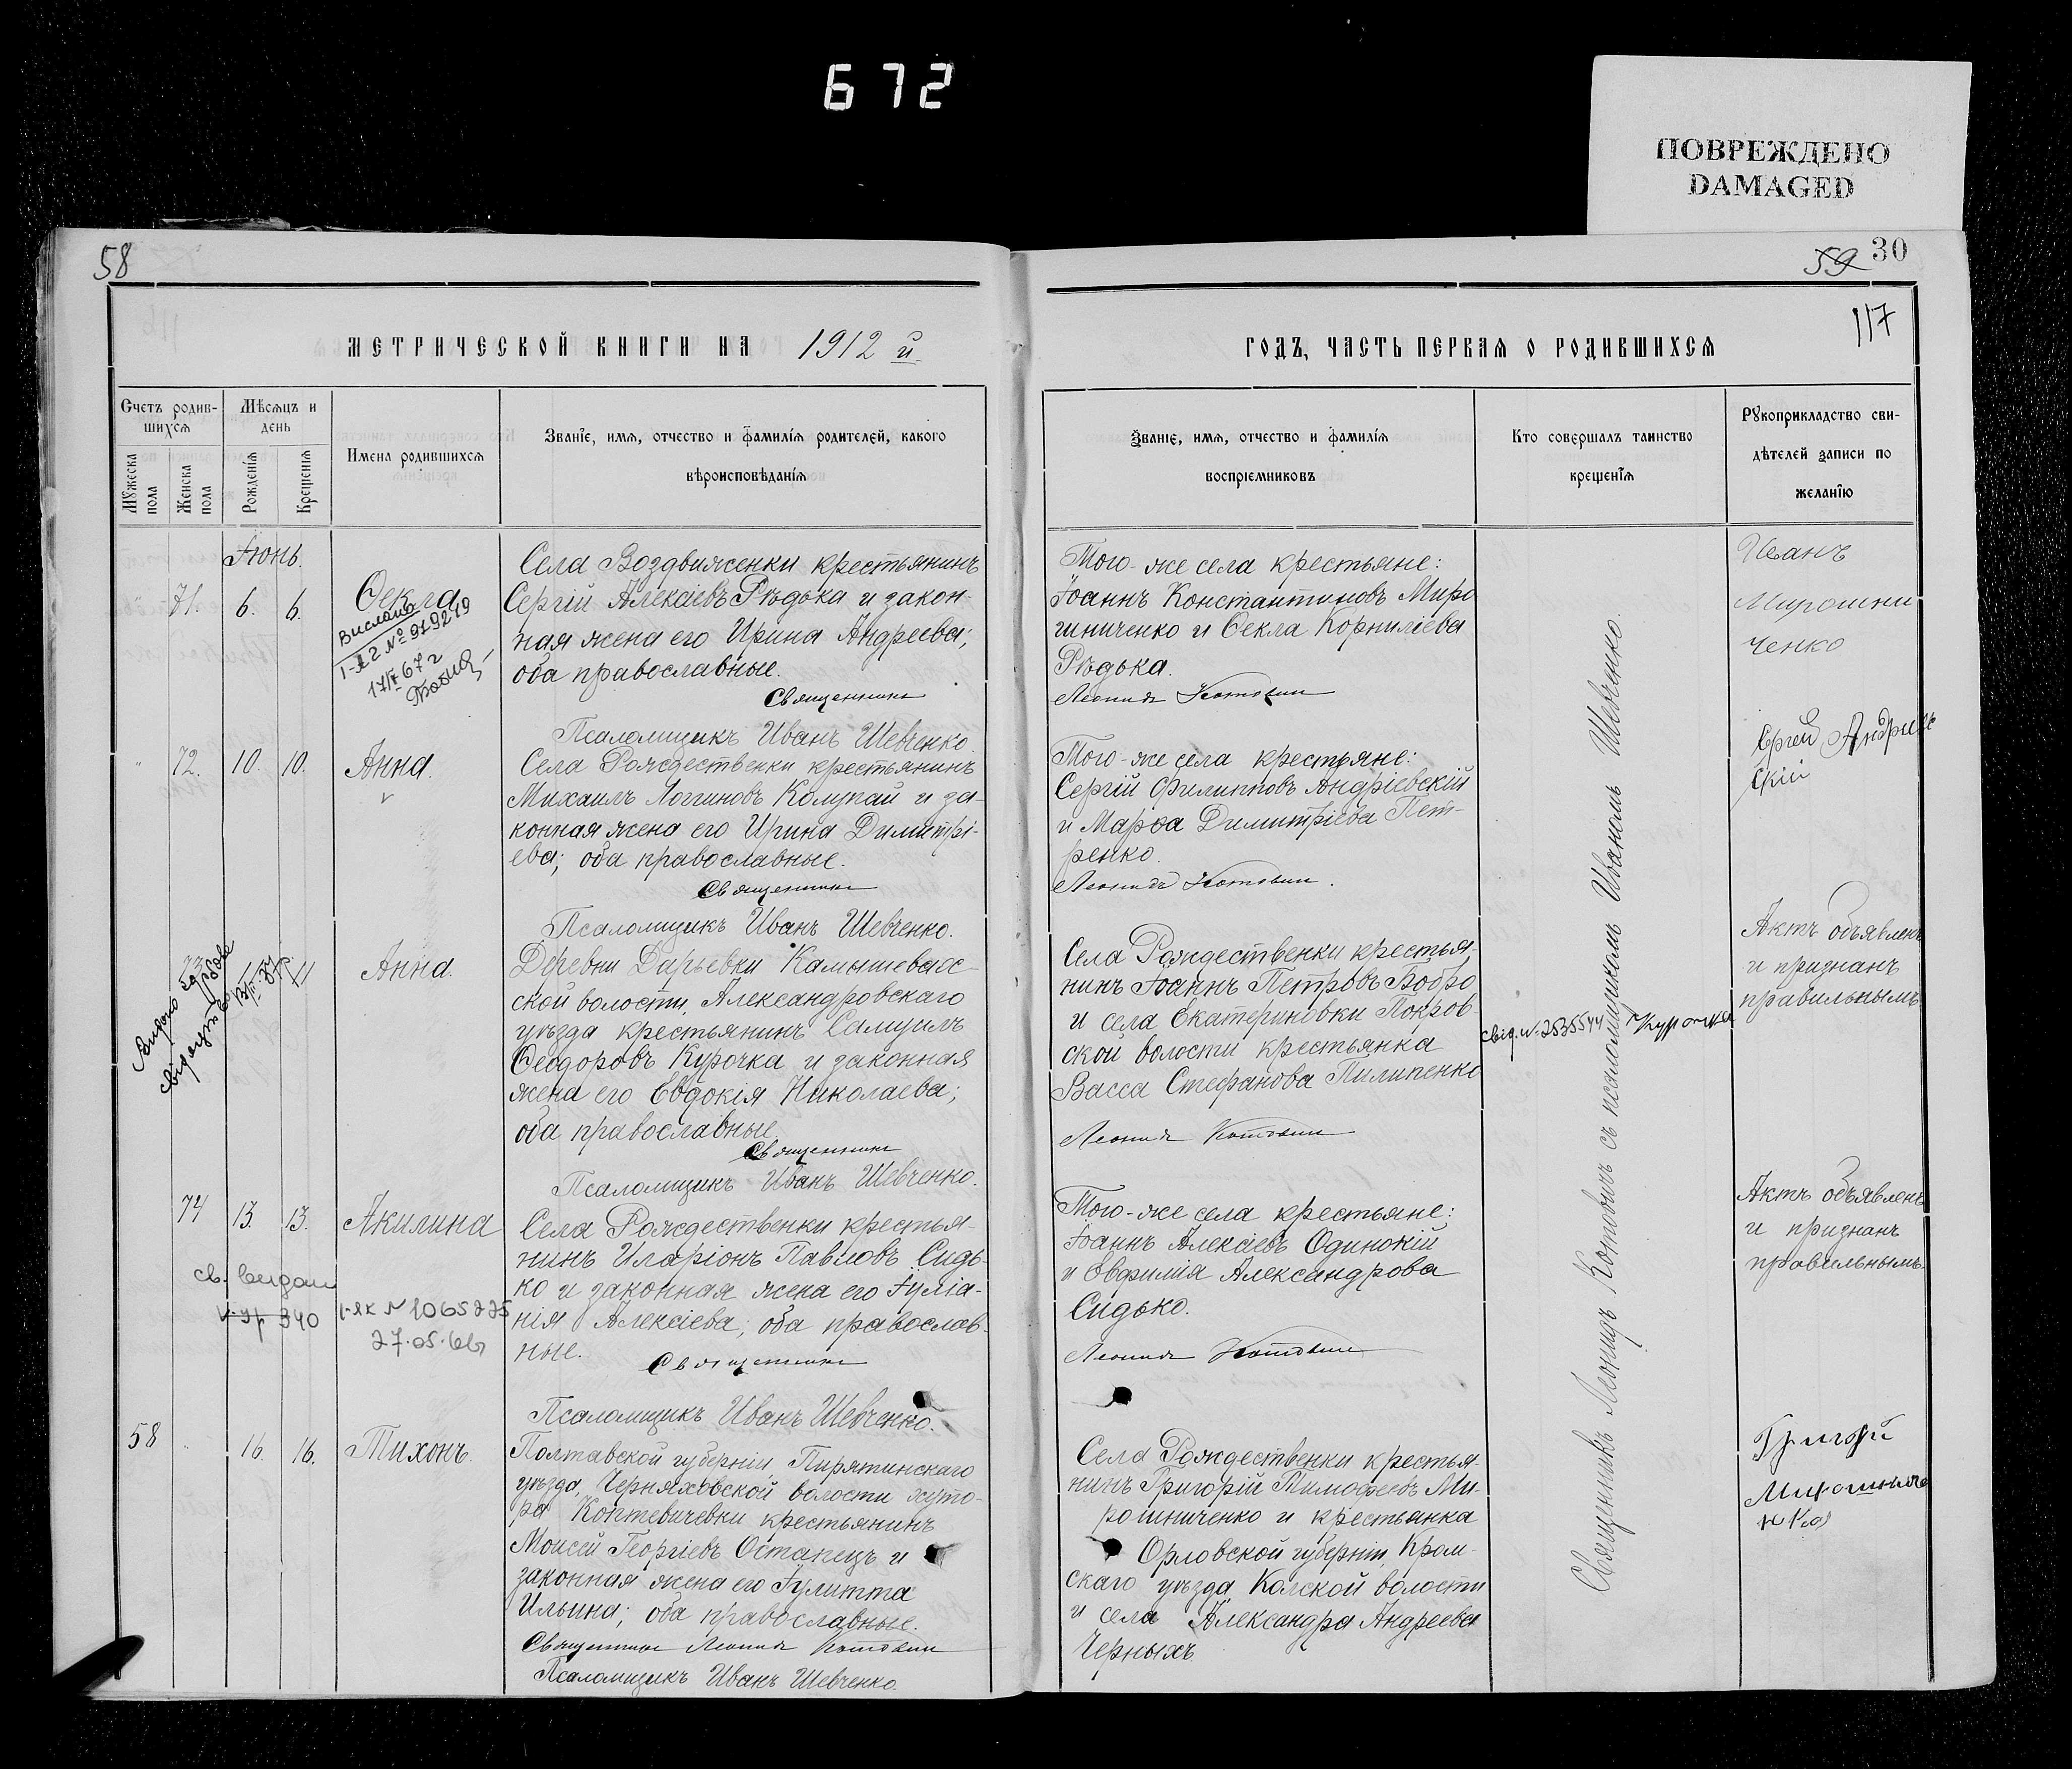 672
ПОВРЕЖДЕНО
DAMAGED
58
59 30
117
МЕТРИЧЕСКОЙ КНИГИ НА 1912 й
ГОДЪ, ЧАСТЬ ПЕРВАЯ О РОДИВШИХСЯ
Счетъ родив-
шихся
Мужеска
пола
Женска
пола
Мѣсяцъ и
день
Рожденія
Крещенія
Имена родившихся
Званіе, имя, отчество и фамилія родителей, какого
вѣроисповѣданія
Званіе, имя, отчество и фамилія
воспріемниковъ
Кто совершалъ таинство
крещенія
Рукоприкладство сви-
дѣтелей записи по
желанію
Іюнь.
71. 6. 6. Ѳекла
Вислано
№ 919219
67 г
Села Воздвиженки крестьянинъ
Сергій Алексіевъ Рѣдька и закон-
ная жена его Ирина Андреева;
оба православные.
Священникъ
Псаломщикъ Иванъ Шевченко.
Того-же села крестьяне:
Іоаннъ Константиновъ Миро
шниченко и Ѳекла Корниліева
Рѣдька.
Леонидъ Котовичъ
Иванъ
Мирошни
ченко
72. 10. 10. Анна.
Села Рождественки крестьянинъ
Михаилъ Логгиновъ Колупай и за-
конная жена его Ирина Димитрі-
ева; оба православные.
Священникъ
Псаломщикъ Иванъ Шевченко.
Того-же села крестьяне:
Сергій Филипповъ Андріевскій
и Марѳа Димитріева Пет-
ренко.
Леонидъ Котовичъ.
Сргей Андриев
скій
73 11 Анна.
Видано
свідоцтво
Деревни Дарьевки Камышевах-
ской волости, Александровскаго
уѣзда крестьянинъ Самуилъ
Ѳеодоровъ Курочка и законная
жена его Евдокія Николаева;
оба православные
Священникъ
Псаломщикъ Иванъ Шевченко.
Села Рождественки крестья-
нинъ Іоаннъ Петровъ Бобро
и села Екатериновки Покров-
ской волости крестьянка
Васса Стефанова Пилипенко
Леонидъ Котовичъ
свід. №. 2535544 Курочка
Актъ объявленъ
и признанъ
правильнымъ
74 13. 13. Акилина
св. видано
340
№ 1065225
27.05.66
Села Рождественки крестья-
нинъ Иларіонъ Павловъ Сидь-
ко и законная жена его Іуліа-
нія Алексіева; оба православ-
ные.
Священникъ
Псаломщикъ Иванъ Шевченко.
Того-же села крестьяне:
Іоаннъ Алексіевъ Одинокій
и Евфимія Александрова
Сидько.
Леонидъ Котовичъ
Актъ объявленъ
и признанъ
правильнымъ.
58 16. 16. Тихонъ.
Полтавской губерніи, Пирятинскаго
уѣзда, Черняховской волости хуто-
ра Коптевичевки крестьянинъ
Моисей Георгіевъ Остапецъ и
законная жена его Іулитта
Ильина; оба православные.
Священникъ Леонидъ Котовичъ
Псаломщикъ Иванъ Шевченко.
Села Рождественки крестья-
нинъ Григорій Тимофеевъ Ми-
рошниченко и крестьянка
Орловской губерніи, Кром-
скаго уѣзда Колской волости
и села Александра Андреева
Черныхъ
Григорій
Мирошниче
нко
Священникъ Леонидъ Котовичъ съ псаломщикомъ Иваномъ Шевченко.